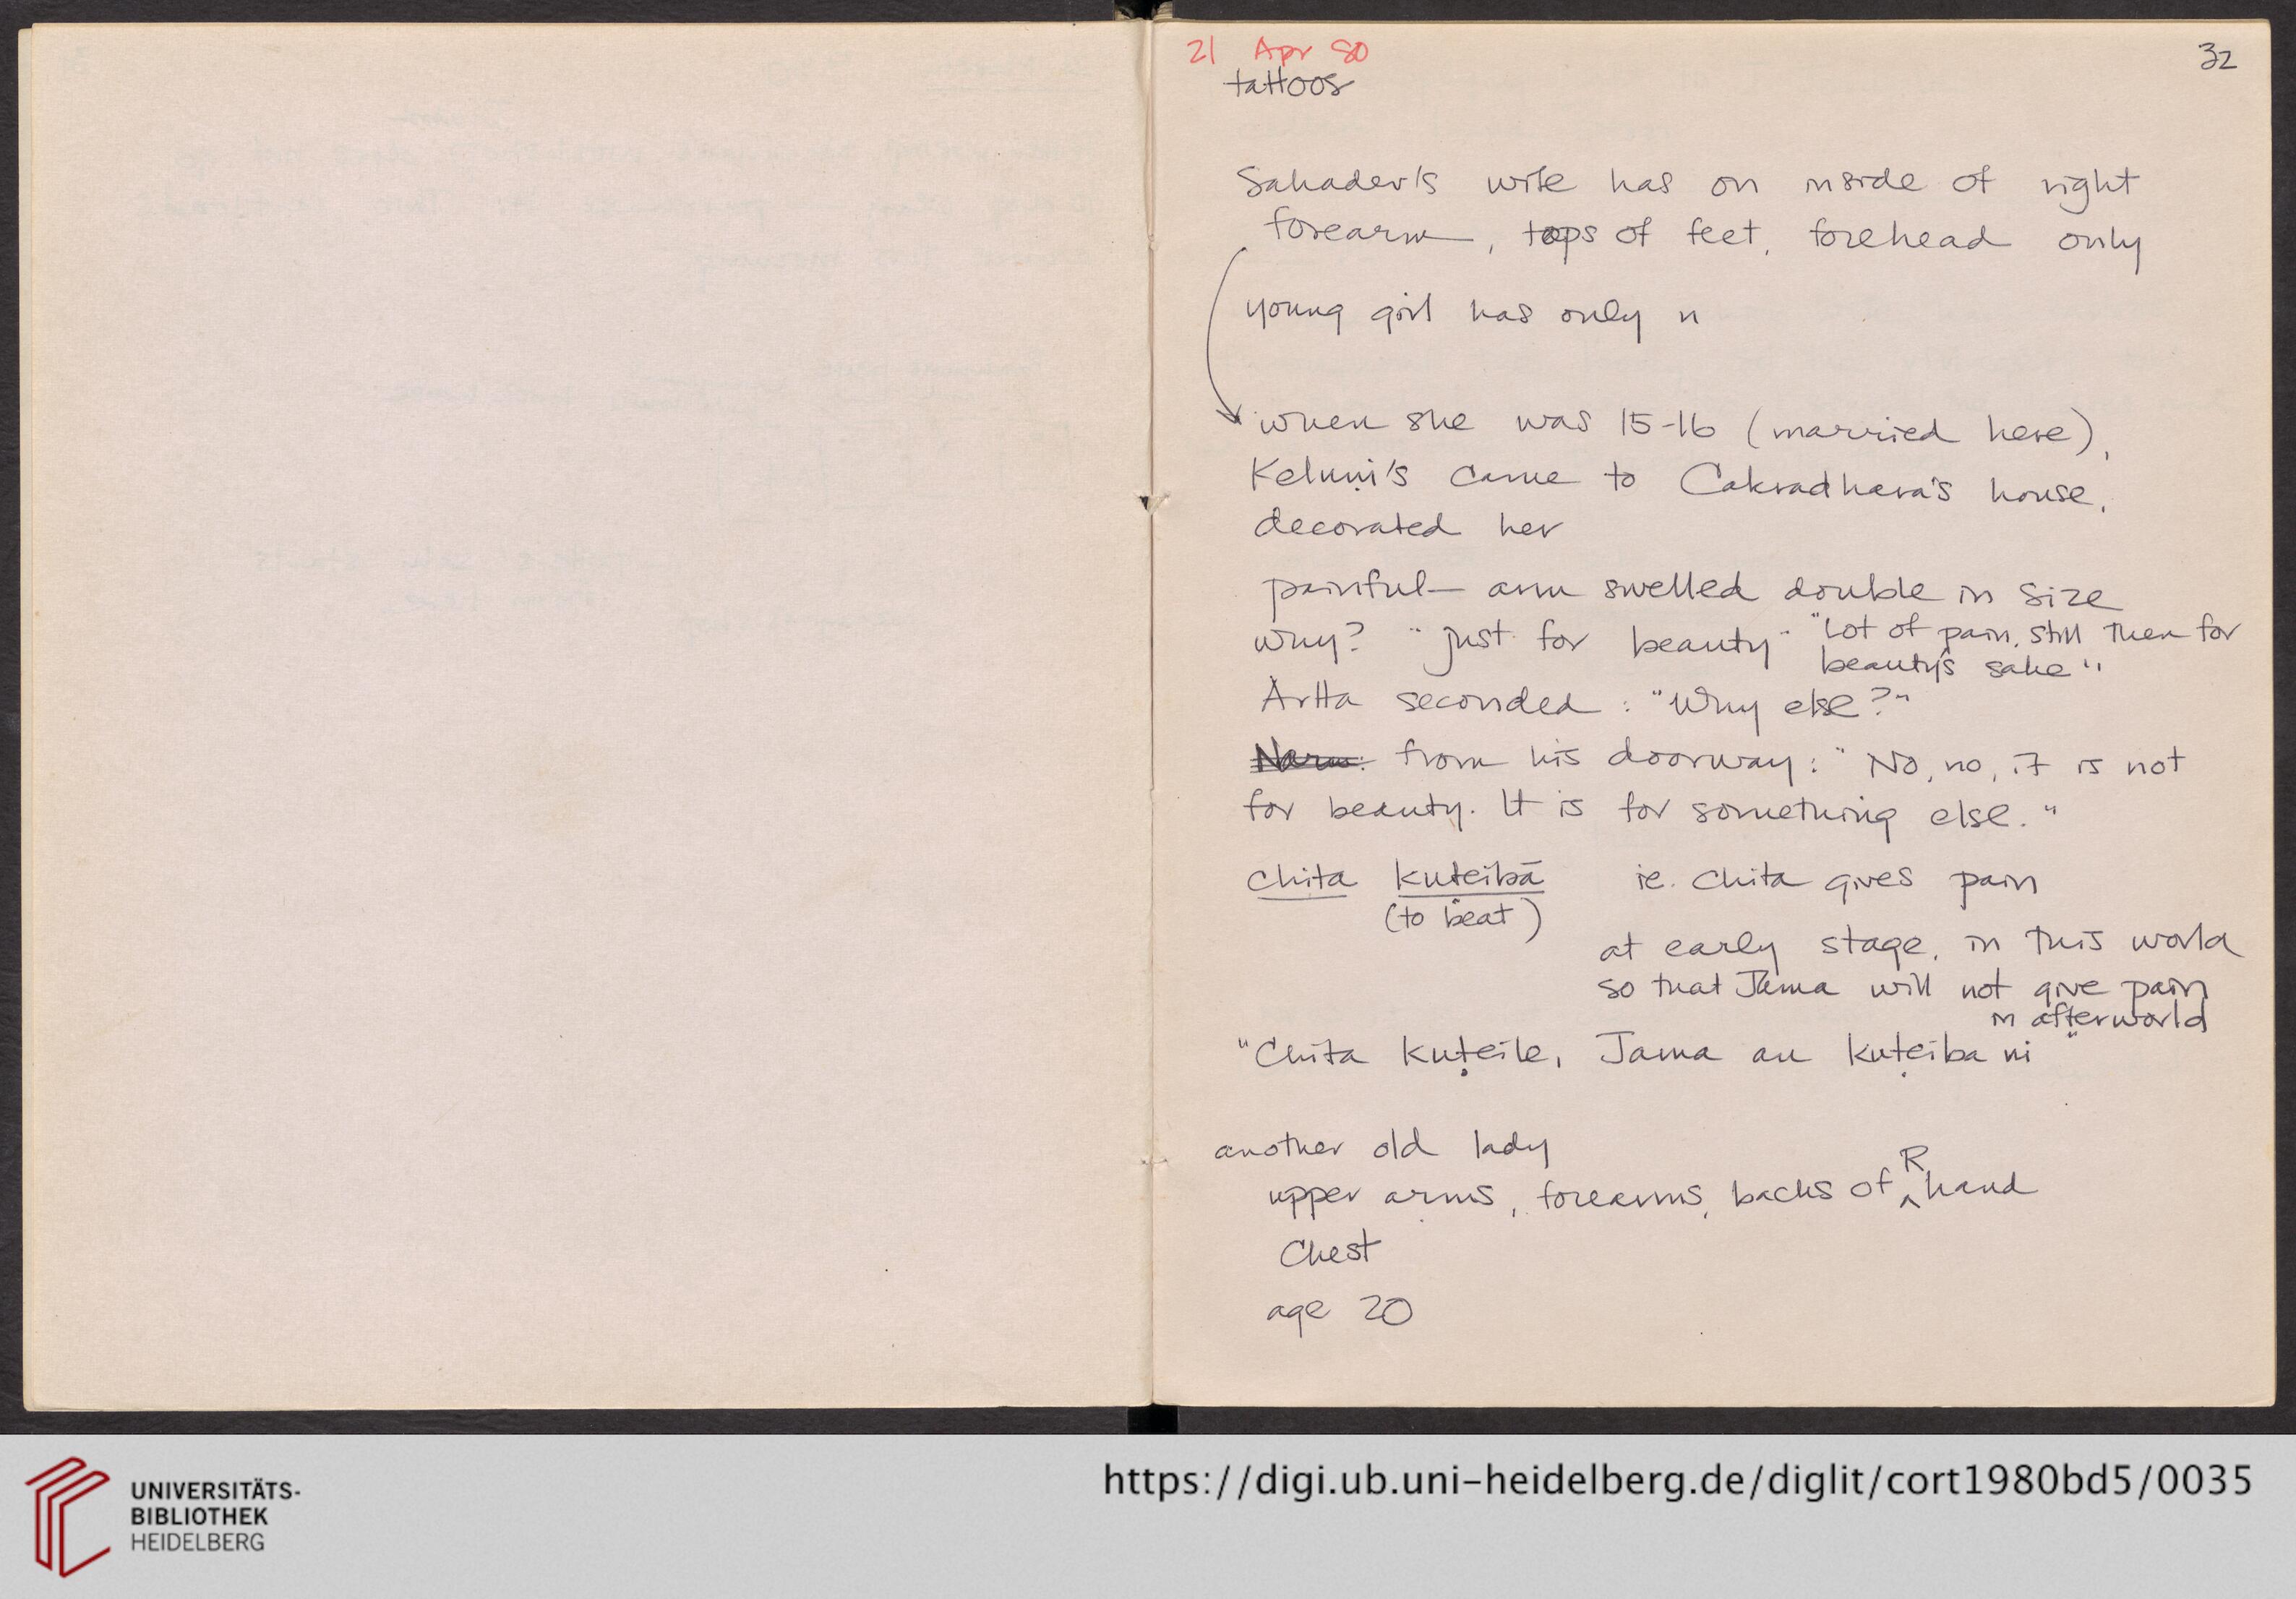 21 Apr 80
32
tattoos
Sahadev's wife has on inside of right
forearm, tops of feet, forehead only
young girl has only n
when she was 15-16 (married here),
Keluṇi's came to Cakradhara's house,
decorated her
painful— arm swelled double in size
why? "just for beauty" "Lot of pain, still then for
beauty's sake"
Artta seconded: "Why else?"
from his doorway: "No, no, it is not
for beauty. It is for something else."
chita kuteibā ie. chita gives pain
(to beat)
at early stage, in this world
so that Jama will not give pain
in afterworld
"Chita kuṭeile, Jama au kuṭeiba ni"
another old lady
upper arms, forearms, backs of R hand
Chest
age 20
UNIVERSITÄTS-
BIBLIOTHEK
HEIDELBERG
https://digi.ub.uni-heidelberg.de/diglit/cort1980bd5/0035